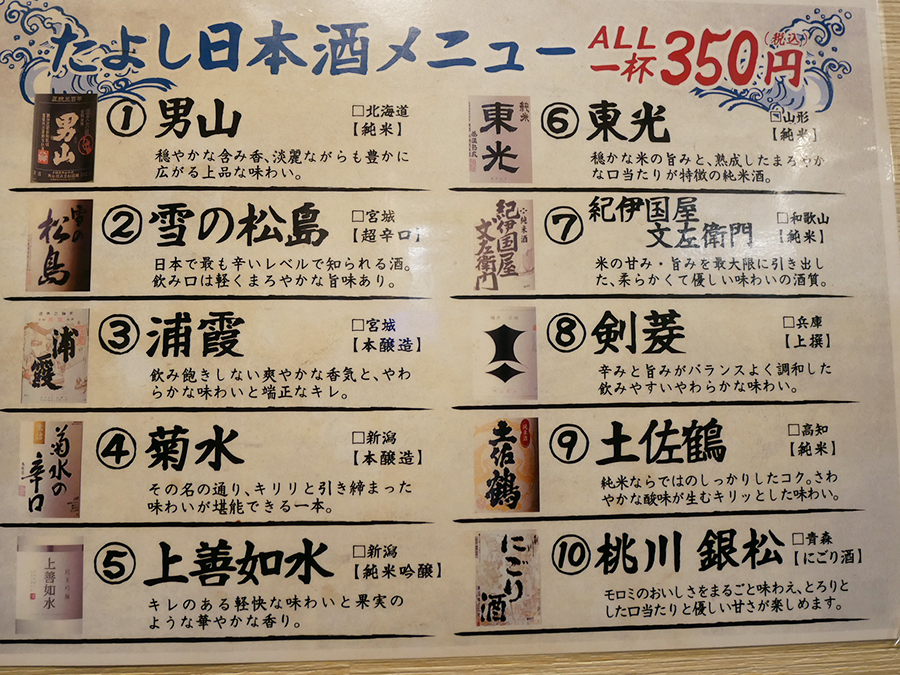 たよし日本酒メニュー ALL 一杯 350円 (税込)
男山
① 男山 □北海道
【純米】
穏やかな含み香、淡麗ながらも豊かに
広がる上品な味わい。
雪の松島
② 雪の松島 □宮城
【超辛口】
日本で最も辛いレベルで知られる酒。
飲み口は軽くまろやかな旨味あり。
浦霞
③ 浦霞 □宮城
【本醸造】
飲み飽きしない爽やかな香気と、やわ
らかな味わいと端正なキレ。
菊水の辛口
④ 菊水 □新潟
【本醸造】
その名の通り、キリリと引き締まった
味わいが堪能できる一本。
上善如水
⑤ 上善如水 □新潟
【純米吟醸】
キレのある軽快な味わいと果実の
ような華やかな香り。
純米
東光
⑥ 東光 □山形
【純米】
穏かな米の旨みと、熟成したまろやか
な口当たりが特徴の純米酒。
純米酒
紀伊国屋
文左衛門
⑦ 紀伊国屋 □和歌山
文左衛門 【純米】
米の甘み・旨みを最大限に引き出し
た、柔らかくて優しい味わいの酒質。
⑧ 剣菱 □兵庫
【上撰】
辛みと旨みがバランスよく調和した
飲みやすいやわらかな味わい。
土佐鶴
⑨ 土佐鶴 □高知
【純米】
純米ならではのしっかりしたコク。さわ
やかな酸味が生むキリッとした味わい。
にごり酒
⑩ 桃川 銀松 □青森
【にごり酒】
モロミのおいしさをまるごと味わえ、とろりと
した口当たりと優しい甘さが楽しめます。